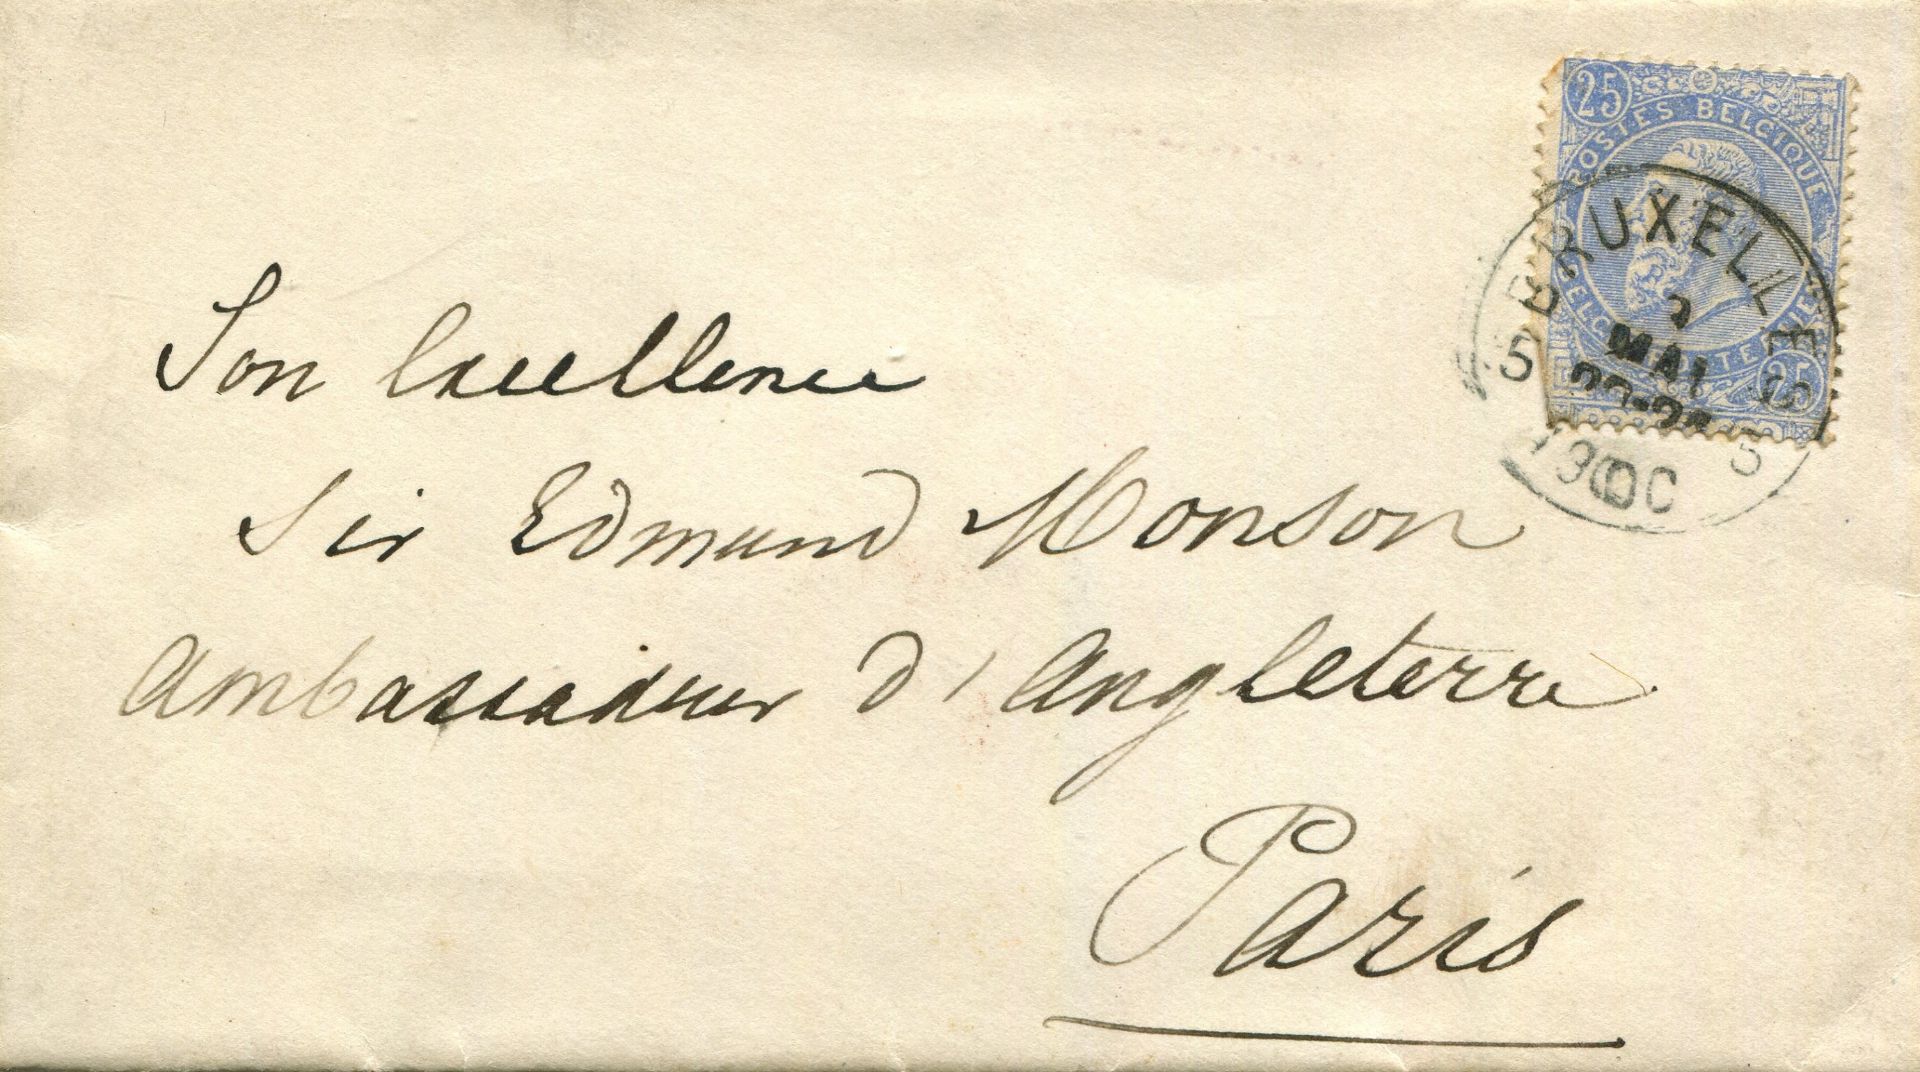 25
POSTES BELGIQUE
BRUXELLES
5 5
MAI
25
Son Excellence
Sir Edmund Monson
Ambassadeur d'Angleterre
Paris